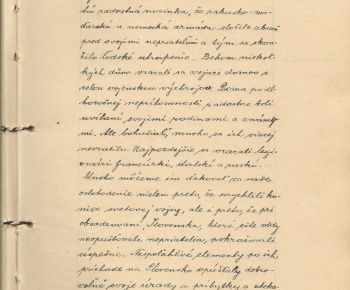 tá radostná novinka, že rakúsko-ma-
ďarská a nemecká armáda, složila zbraň
pred svojimi nepriateľmi a tým sa skon-
čilo ľudské utrpenie. Behom niekoľ-
kých dňov vracali sa vojaci domov s
celou vojenskou výzbrojou. Doma po dl-
horočnej neprítomnosti radostne boli
uvítaní svojimi rodinami a známy-
mi. Ale bohužiaľ, mnoho sa ich viacej
nevrátilo. Najpozdejšie sa vracali legi-
onári francúzki, italskí a ruskí.
Mnoho môžeme im ďakovať za naše
oslobodenie nielen preto, že urýchlili ko-
niec svetovej vojny, ale i preto, že pri
obsadzovaní Slovenska, ktoré ešte vždy
neopúšťovali nepriatelia, pokračovali
úspešne. Nespoľahlivé elementy po ich
príchode na Slovensko opúšťaly dobro-
voľne svoje úrady a príbytky a